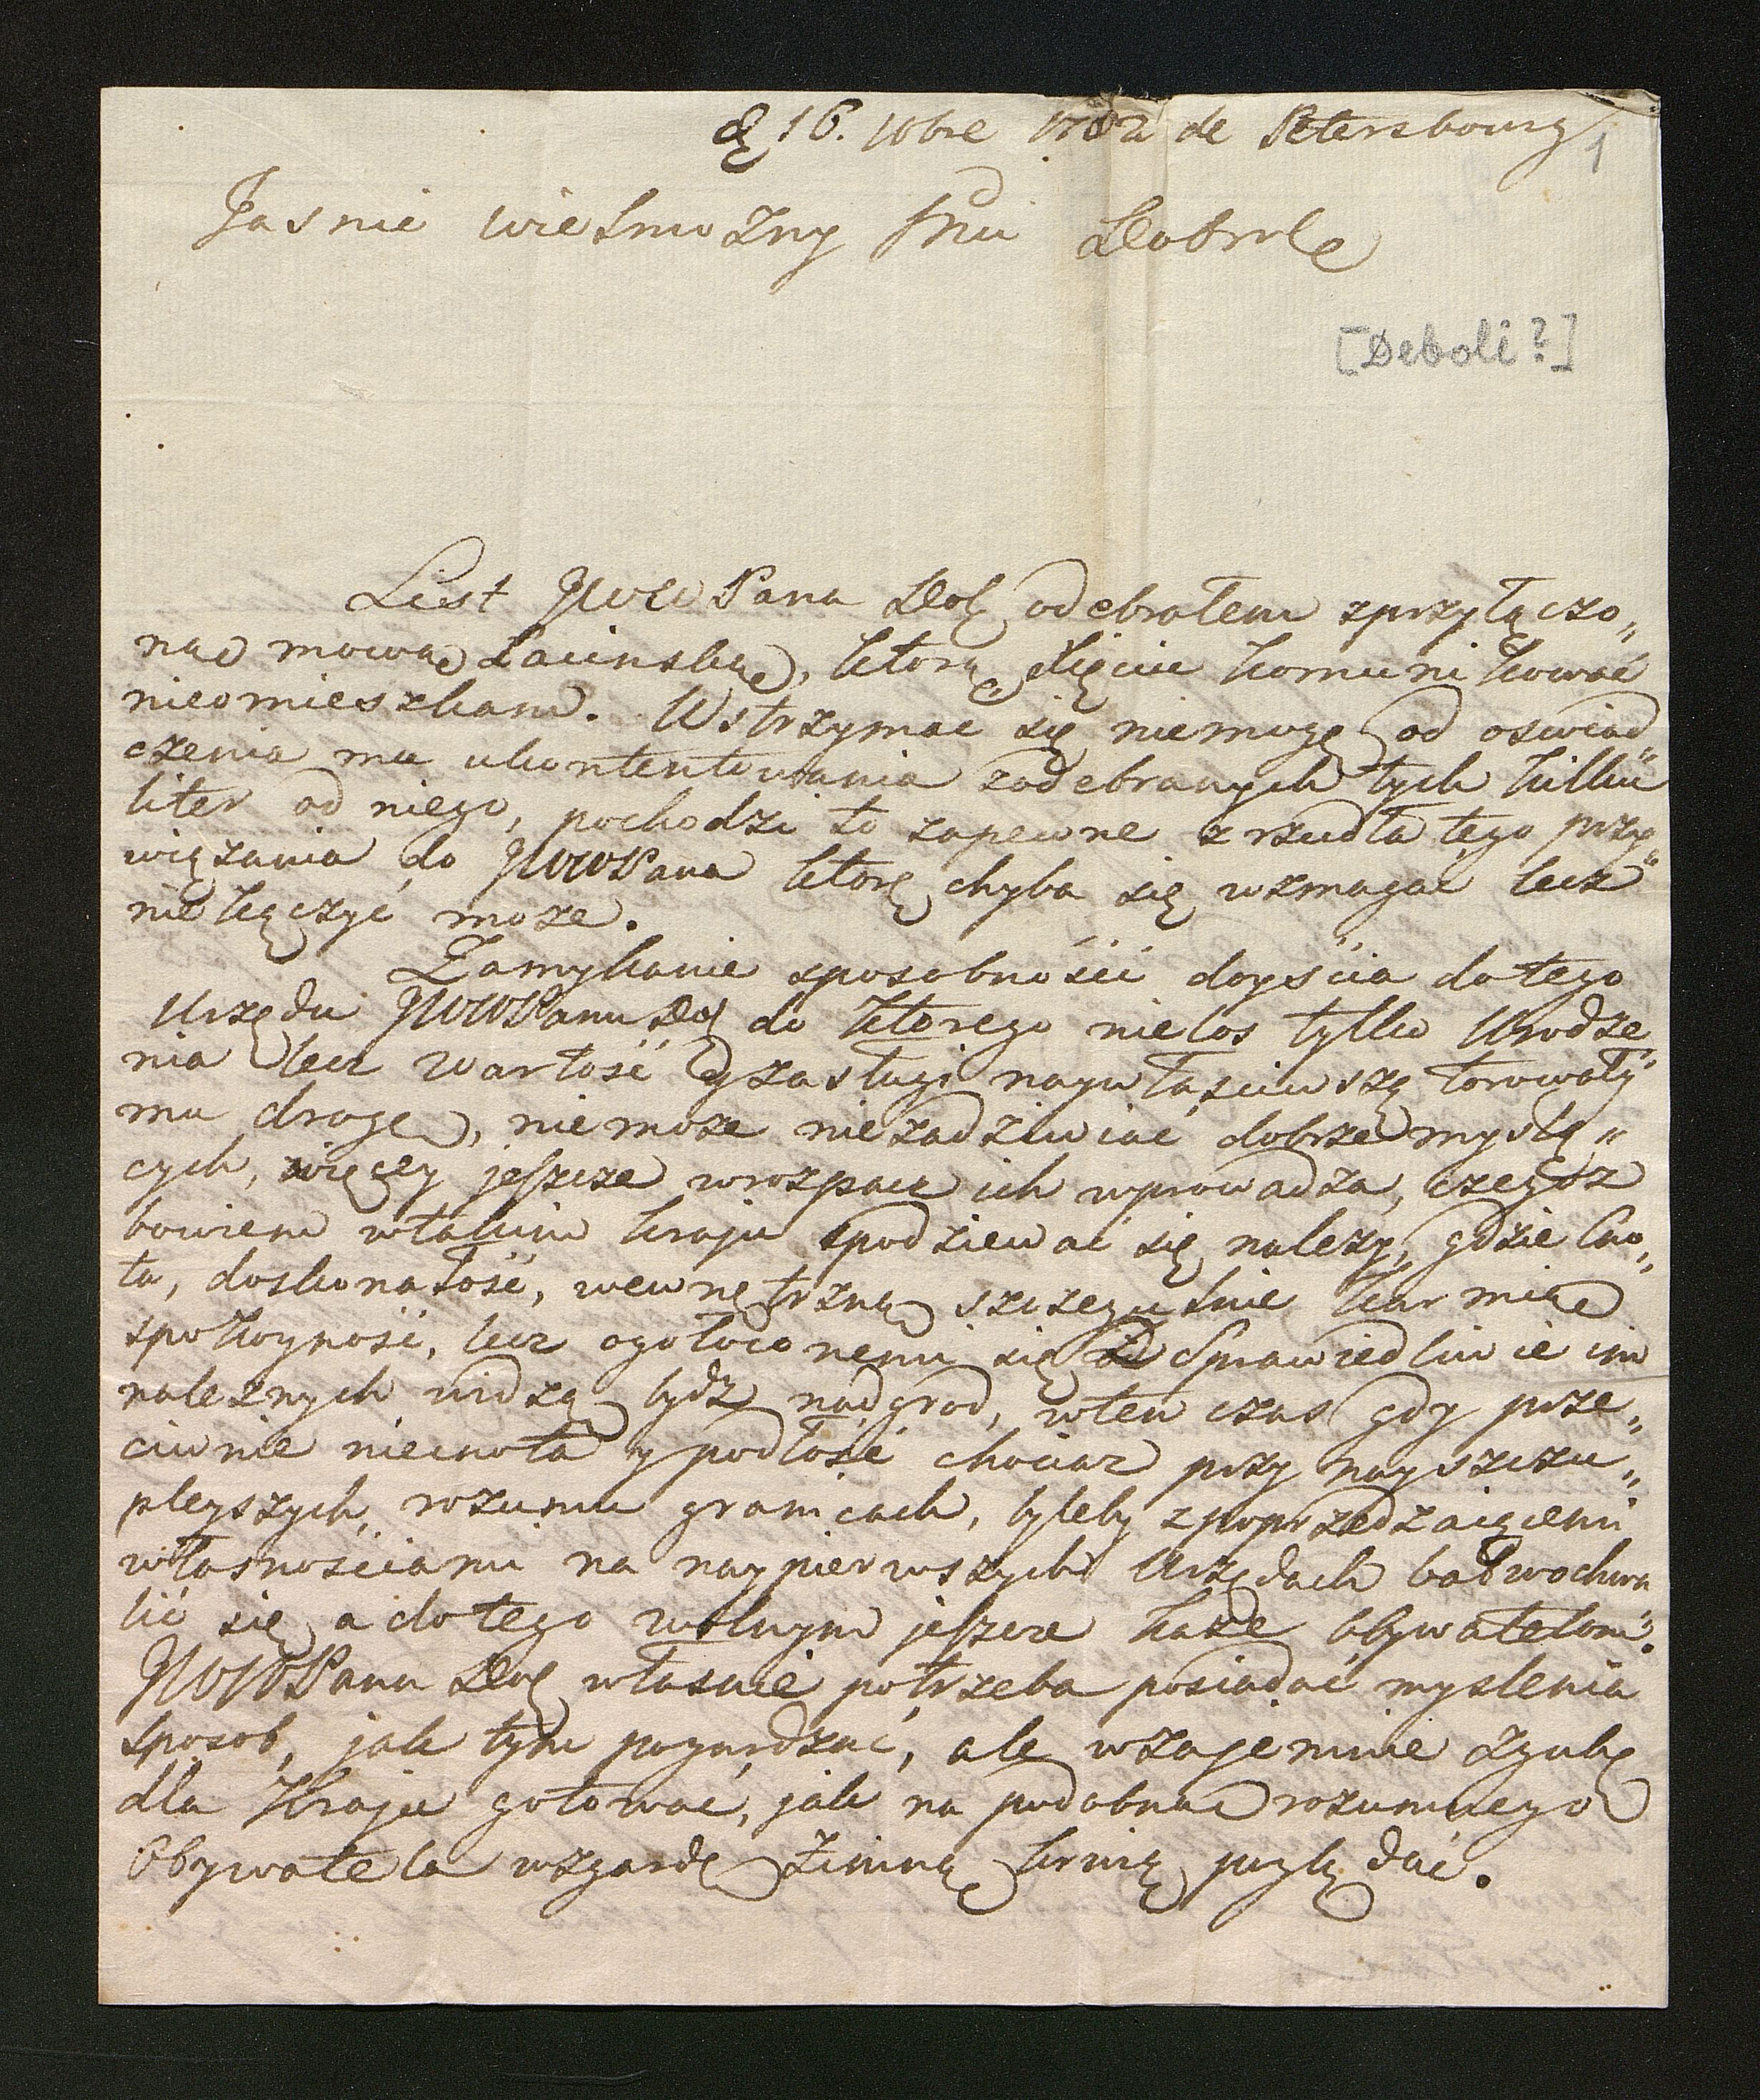 16. 10bre 1782 de Petersbourg
1
Jasnie wielmozny Dobrole
[Deboli?]
List JWW Pana Dob odebrałem zprzyłączo„
ną mową Łacinską, ktorą Xięciu komunikować
nieomieszkam. Wstrzymac się niemogę od oswiad„
czenia mu ukontentowania zodebranych tych kilku
liter od niego, pochodzi to zapewne z rzudła tego przy„
wiązania do JWWPana ktore chyba się wzmagac lecz
nie tęczyć moze.
Zamykanie sposobności doyścia do tego
Urzędu JWWPanu Dob do ktorego nielos tylko Urodze„
nia lecz wartość y zasługi naywłasciwszę torowały
mu drogę, niemoze niezadziwiać dobrze myslą„
cych, więcey jeszcze wrozpacz ich wprowadza, czegoz
bowiem wtakim kraju spodziewac się nalezy, gdzie Cno„
ta, doskonałość, wewnętrzną szczegulnie karmią
spokoyność, lecz ogołoconemi się z Sprawiedliwie im
naleznych widzą bydz nadgrod, wten czas gdy prze„
ciwnie niecnota y podłość chociaz przy nayszczu„
pleyszych rozumu granicach, byleby zpoprzedzaiącemi
własnościami na naypierwszych Urzędach bałwochwa
lić się a do tego wolnym jeszcze kaze obywatelom.
JWWPanu Dob własnie potrzeba posiadać myslenia
sposob, jak tym pogardzać, ale wzajemnie zgubę
dla Kraju gotować, jak na podobną rozumnego
Obywatela wzgardę zimną krwią poglądać.